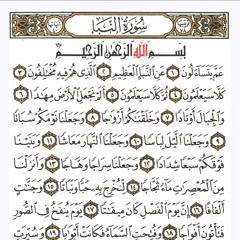 سُورَةُ النَّبَإِ
بِسْمِ اللَّهِ الرَّحْمَٰنِ الرَّحِيمِ
عَمَّ يَتَسَاءَلُونَ ١ عَنِ النَّبَإِ الْعَظِيمِ ٢ الَّذِي هُمْ فِيهِ مُخْتَلِفُونَ ٣
كَلَّا سَيَعْلَمُونَ ٤ ثُمَّ كَلَّا سَيَعْلَمُونَ ٥ أَلَمْ نَجْعَلِ الْأَرْضَ مِهَادًا ٦
وَالْجِبَالَ أَوْتَادًا ٧ وَخَلَقْنَاكُمْ أَزْوَاجًا ٨ وَجَعَلْنَا نَوْمَكُمْ سُبَاتًا
٩ وَجَعَلْنَا اللَّيْلَ لِبَاسًا ١٠ وَجَعَلْنَا النَّهَارَ مَعَاشًا ١١ وَبَنَيْنَا
فَوْقَكُمْ سَبْعًا شِدَادًا ١٢ وَجَعَلْنَا سِرَاجًا وَهَّاجًا ١٣ وَأَنزَلْنَا
مِنَ الْمُعْصِرَاتِ مَاءً ثَجَّاجًا ١٤ لِّنُخْرِجَ بِهِ حَبًّا وَنَبَاتًا ١٥ وَجَنَّاتٍ
أَلْفَافًا ١٦ إِنَّ يَوْمَ الْفَصْلِ كَانَ مِيقَاتًا ١٧ يَوْمَ يُنفَخُ فِي الصُّورِ
فَتَأْتُونَ أَفْوَاجًا ١٨ وَفُتِحَتِ السَّمَاءُ فَكَانَتْ أَبْوَابًا ١٩ وَسُيِّرَتِ